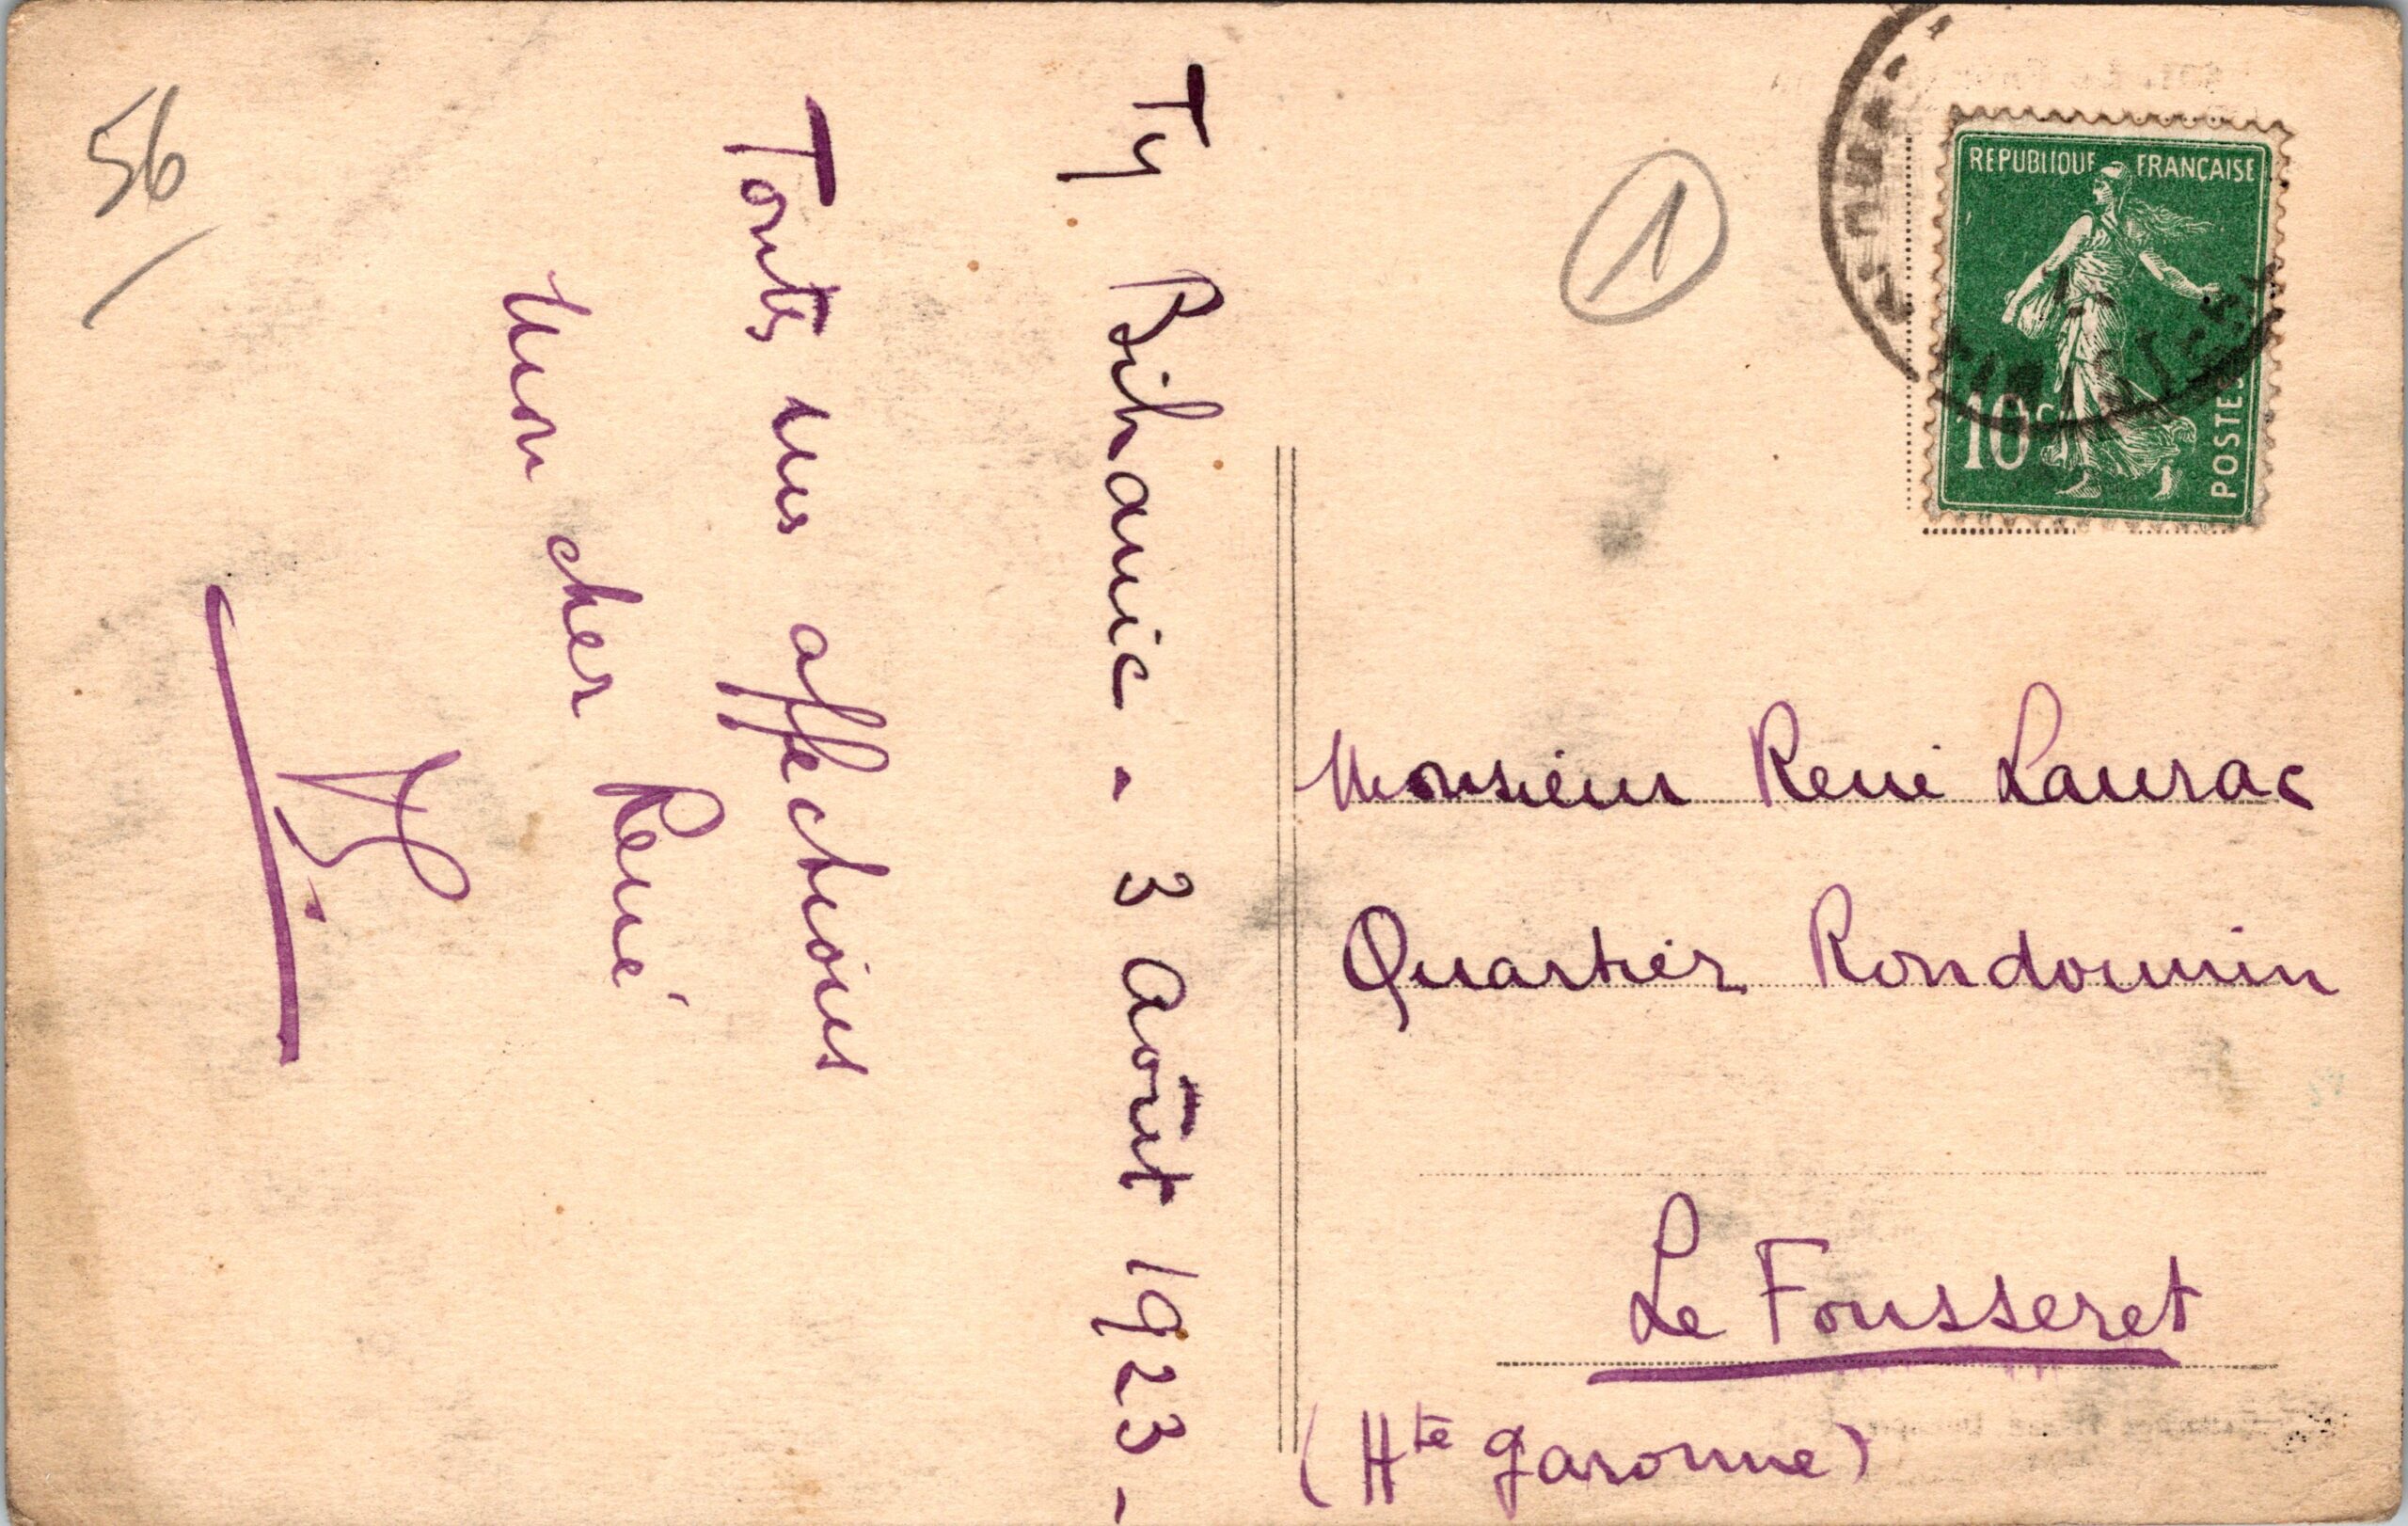 Ty Bihanic - 3 Août 1923 -
Toutes mes affections
Mon cher René
56
1
REPUBLIQUE FRANÇAISE
10c
POSTES
FINISTERE
Monsieur René Laurac
Quartier Rondoumin
Le Fousseret
(Hte Garonne)